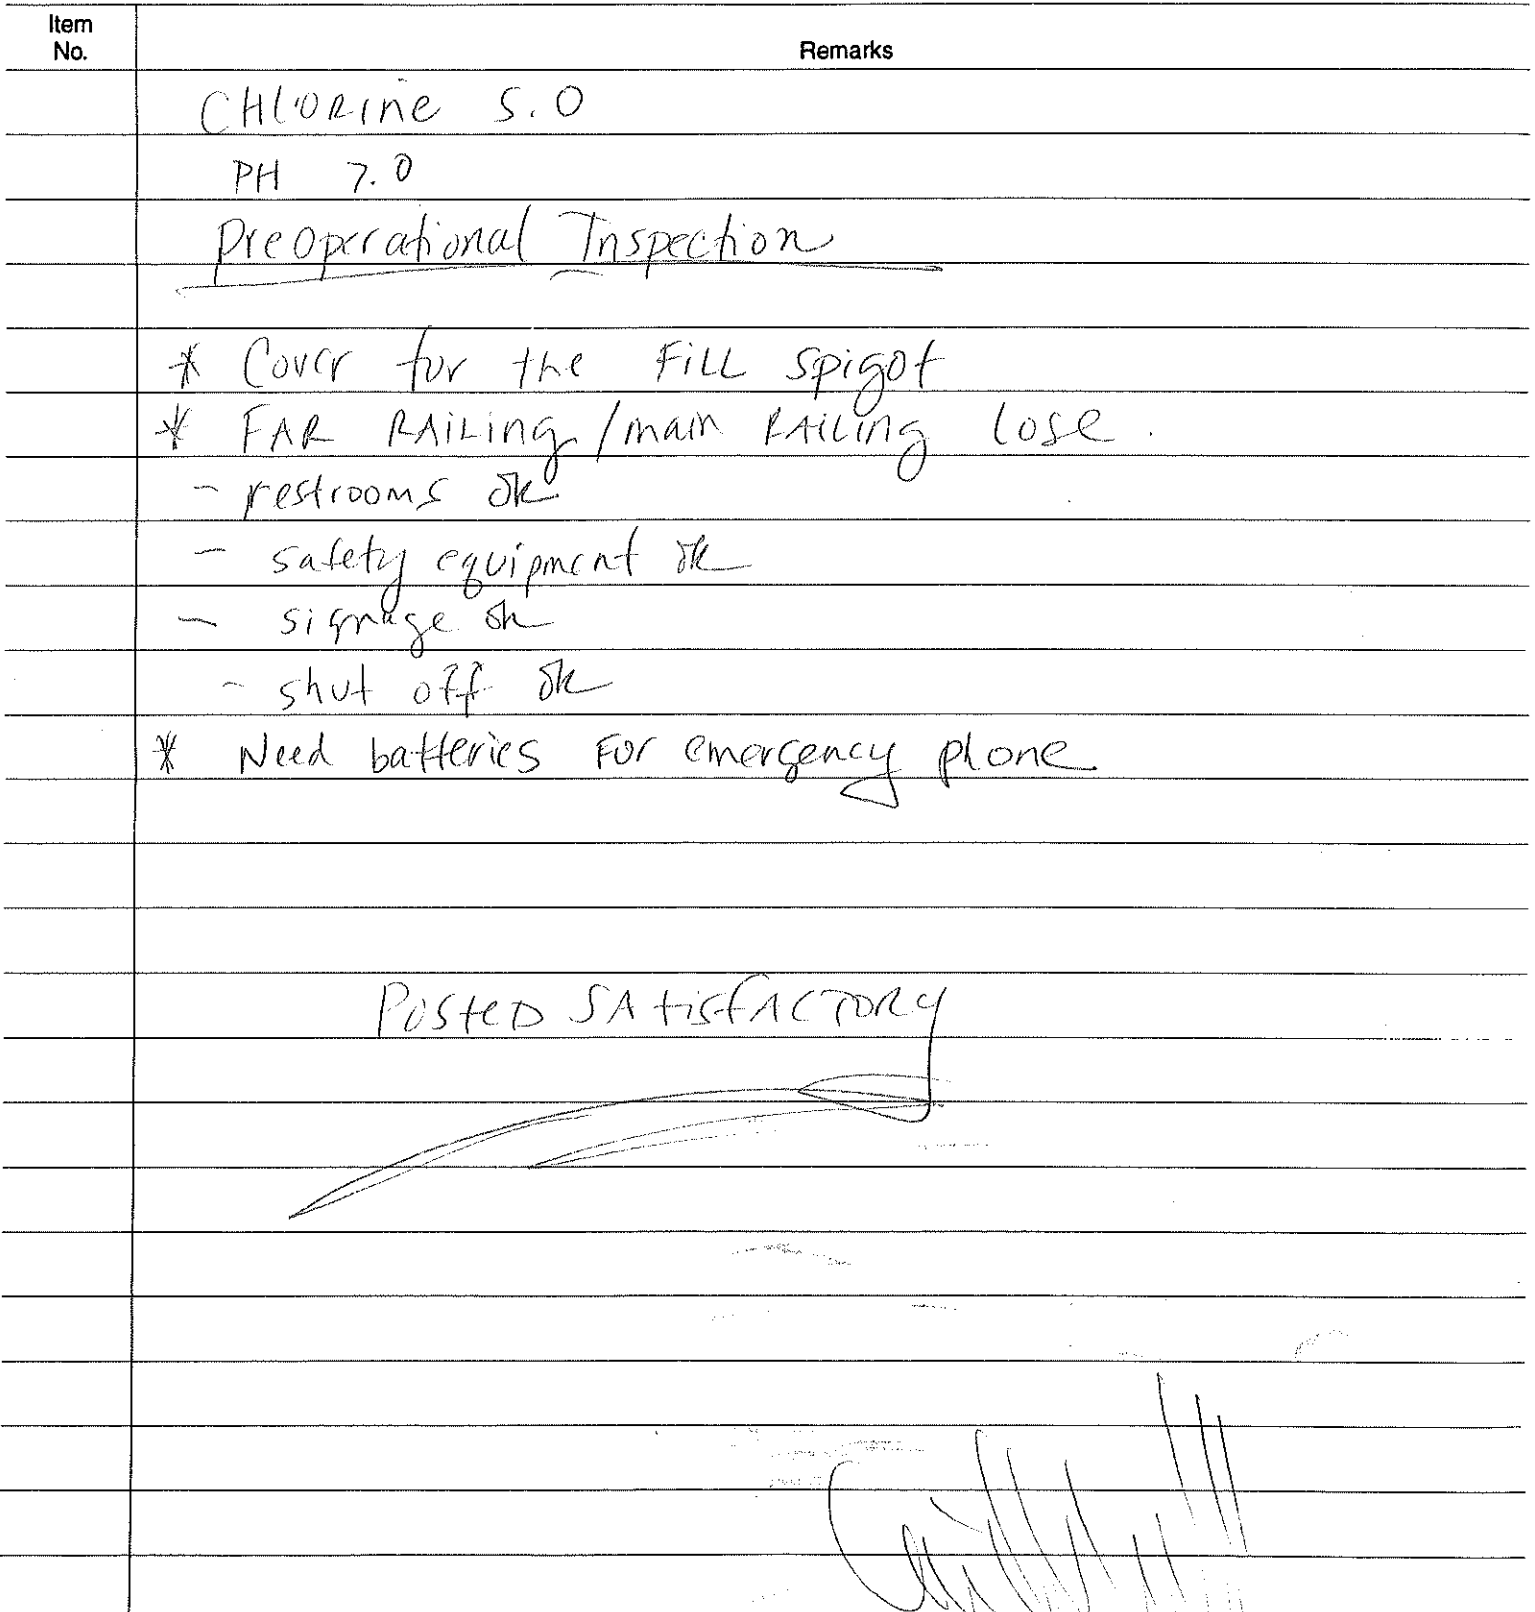 Item
No.
Remarks
CHLORine 5.0
PH 7.0
Preoperational Inspection
* Cover for the FiLL spigot
* FAR RAiLing/main RAiLing lose.
- restrooms ok
- safety equipment ok
- signage ok
- shut off ok
* Need batteries For emergency phone
PosteD SAtisfACTORY